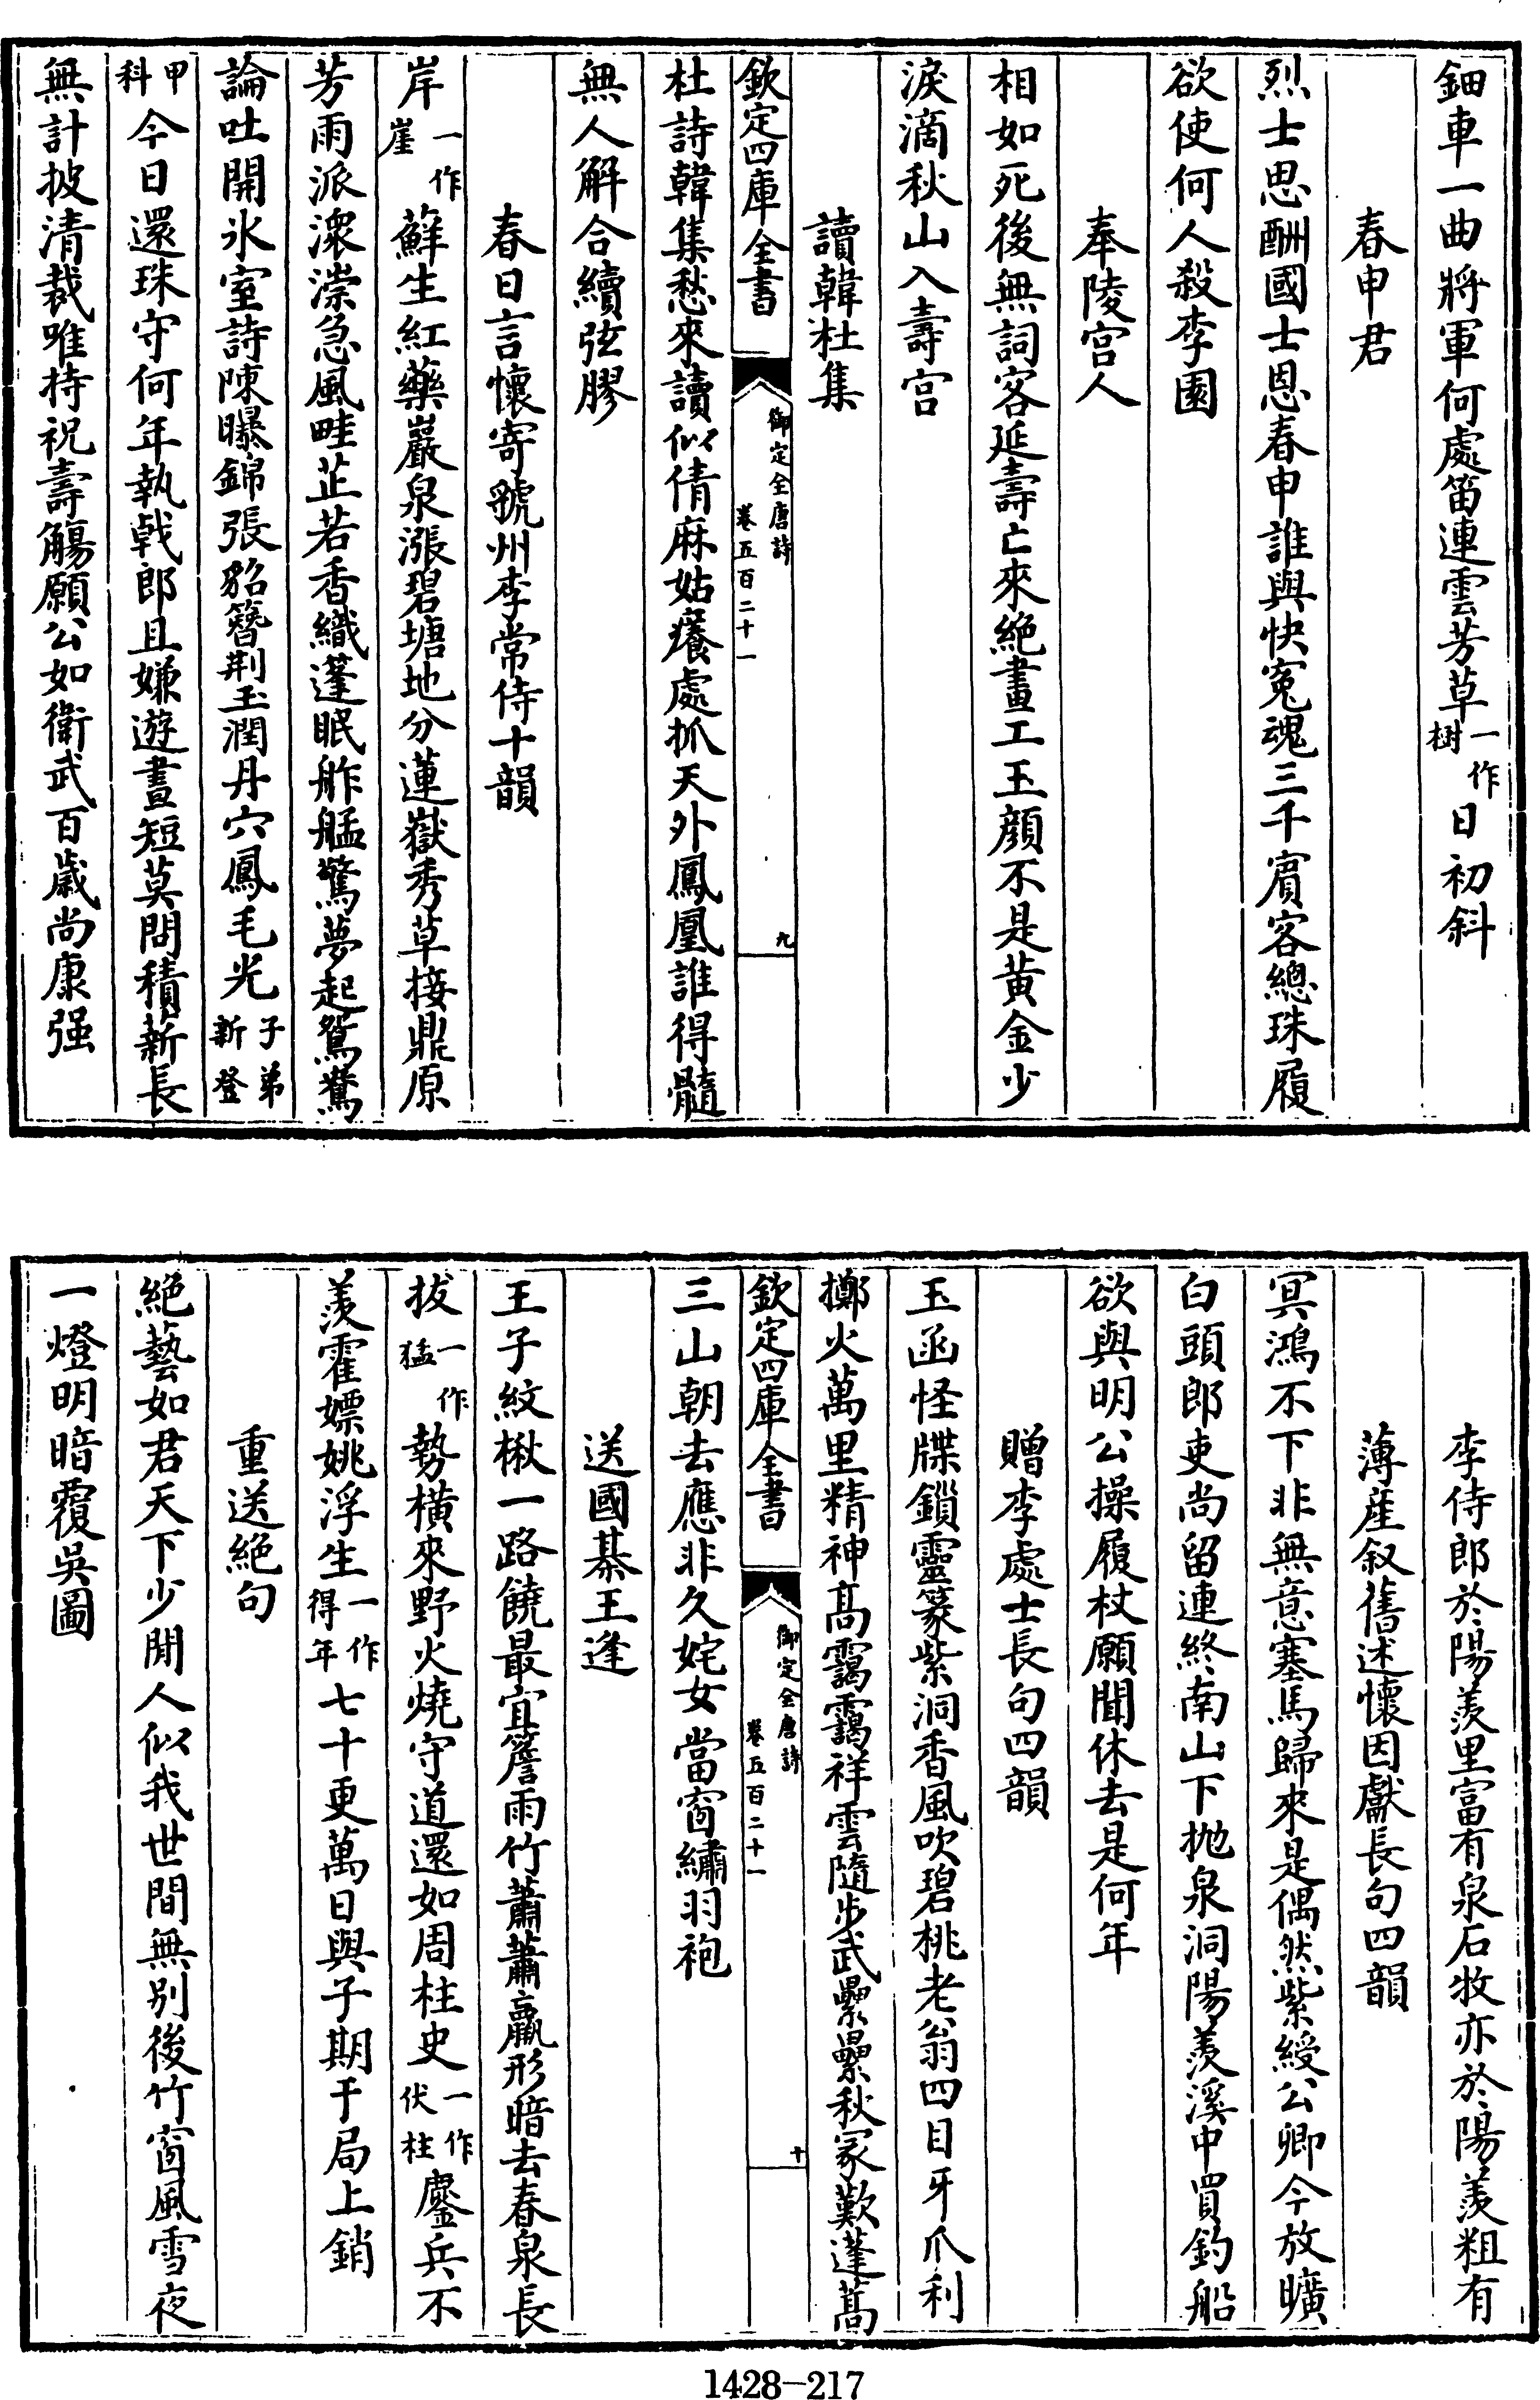 鈿車一曲將軍何處笛連雲芳草一作樹日初斜
春申君
烈士思酬國士恩春申誰與快寃魂三千賔客總珠履
欲使何人殺李園
奉陵宫人
相如死後無詞客延壽亡來絶畫工玉顔不是黄金少
淚滴秋山入壽宫
讀韓杜集
欽定四庫全書
御定全唐詩
卷五百二十一
九
杜詩韓集愁來讀似倩麻姑癢處抓天外鳳凰誰得髓
無人解合續弦膠
春日言懷寄虢州李常侍十韻
岸一作崖蘚生紅藥巖泉漲碧塘地分蓮嶽秀草接鼎原
芳雨派潨漴急風畦芷若香織蓬眠舴艋驚夢起鴛鴦
論吐開氷室詩陳曝錦張貂簪荆玉潤丹穴鳳毛光子弟新登
甲科今日還珠守何年執戟郎且嫌遊晝短莫問積薪長
無計披清裁唯持祝壽觴願公如衛武百歳尚康强
李侍郎於陽羨里富有泉石牧亦於陽羨粗有
薄産叙舊述懷因獻長句四韻
冥鴻不下非無意塞馬歸來是偶然紫綬公卿今放曠
白頭郎吏尚留連終南山下抛泉洞陽羨溪中買釣船
欲與明公操履杖願聞休去是何年
贈李處士長句四韻
玉函怪牒鎖靈篆紫洞香風吹碧桃老翁四目牙爪利
擲火萬里精神髙靄靄祥雲隨步武纍纍秋冢歎蓬蒿
欽定四庫全書
御定全唐詩
卷五百二十一
十
三山朝去應非久姹女當窗繡羽袍
送國棊王逢
王子紋楸一路饒最宜簷雨竹蕭蕭羸形暗去春泉長
拔一作猛勢横來野火燒守道還如周柱史一作伏柱鏖兵不
羨霍嫖姚浮生一作得年七十更萬日與子期于局上銷
重送絶句
絶藝如君天下少閒人似我世間無别後竹窗風雪夜
一燈明暗覆吳圖
1428-217